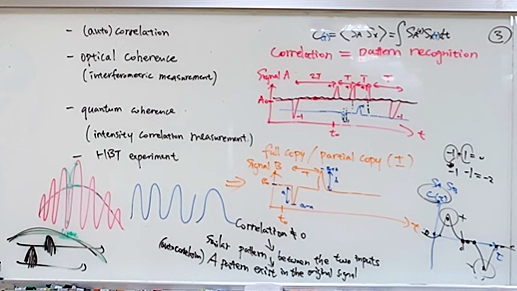 - (auto) correlation
- optical coherence
(interferometric measurement)
- quantum coherence
(intensity correlation measurement)
- HBT experiment
③
Correlation = pattern recognition
Signal A
2T T T T
A₀
-1 -1
t₀ t
full copy / partial copy (±)
Signal B
t₀
Correlation ≠ 0
Similar pattern between the two inputs
(autocorrelation) A pattern exist in the original signal
-1 -1 = -2